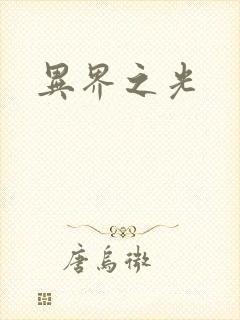 異界之光
唐烏微